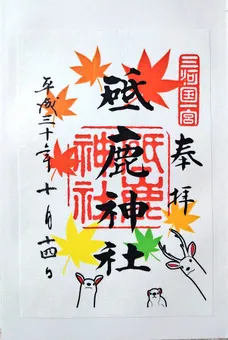 三河国一宮
奉拝
砥鹿神社
砥鹿神社
平成三十年十月十四日